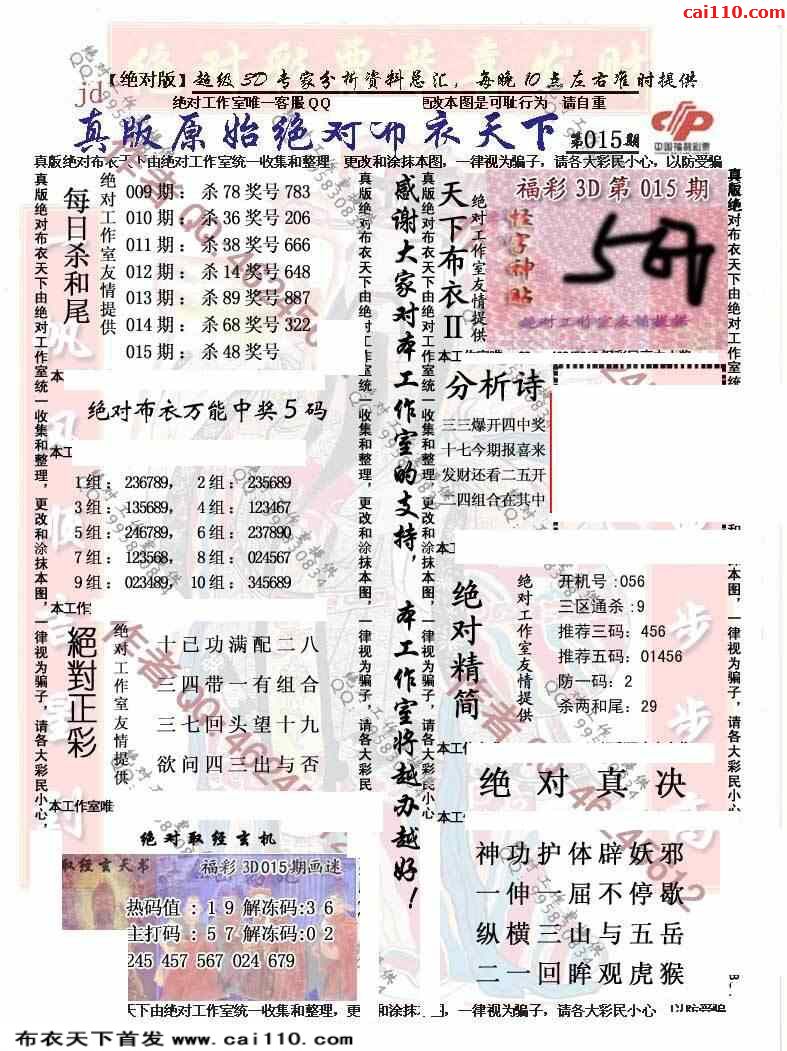 cai110.com
【绝对版】超级3D专家分析资料总汇，每晚10点左右准时提供
jd
绝对工作室唯一客服QQ 更改本图是可耻行为 请自重
真版原始绝对布衣天下
第015期
中国福利彩票
真版绝对布衣天下由绝对工作室统一收集和整理，更改和涂抹本图，一律视为骗子，请各大彩民小心，以防受骗
每日杀和尾
绝对工作室友情提供
009期：杀78奖号783
010期：杀36奖号206
011期：杀38奖号666
012期：杀14奖号648
013期：杀89奖号887
014期：杀68奖号322
015期：杀48奖号
绝对布衣万能中奖5码
1组：236789， 2组：235689
3组：135689， 4组：123467
5组：246789， 6组：237890
7组：123568， 8组：024567
9组：023489， 10组：345689
絕對正彩
绝对工作室友情提供
十己功满配二八
三四带一有组合
三七回头望十九
欲问四三山与否
绝对取经玄机
取经玄天书
福彩3D015期画迷
热码值：19解冻码:36
主打码：57解冻码:02
245 457 567 024 679
真版绝对布衣天下由绝对工作室统一收集和整理，更改和涂抹本图，一律视为骗子，请各大彩民小心，
感谢大家对本工作室的支持，本工作室将越办越好！
天下布衣II
绝对工作室友情提供
福彩3D第015期
怪字神贴
绝对工作室友情提供
分析诗
三三爆开四中奖
十七今期报喜来
发财还看二五开
二四组合在其中
绝对精简
绝对工作室友情提供
开机号:056
三区通杀:9
推荐三码：456
推荐五码：01456
防一码：2
杀两和尾：29
绝对真决
神功护体辟妖邪
一伸一屈不停歇
纵横三山与五岳
二一回眸观虎猴
天下由绝对工作室统一收集和整理，更和涂抹本图，一律视为骗子，请各大彩民小心，以防受骗
布衣天下首发 www.cai110.com